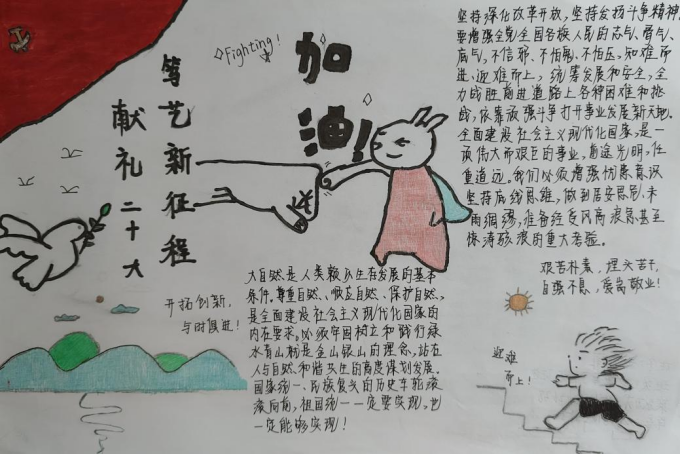 Fighting!
加油!
笃艺新征程
献礼二十大
坚持深化改革开放,坚持发扬斗争精神,
要增强全党全国各族人民的志气、骨气、
底气,不信邪、不怕鬼、不怕压,知难而
进、迎难而上,统筹发展和安全,全
力战胜前进道路上各种困难和挑
战,依靠顽强斗争打开事业发展新天地。
全面建设社会主义现代化国家,是一
项伟大而艰巨的事业,前途光明,任
重道远。我们必须增强忧患意识
坚持底线思维,做到居安思危、未
雨绸缪,准备经受风高浪急甚至
惊涛骇浪的重大考验。
艰苦朴素,埋头苦干,
自强不息,爱岗敬业!
开拓创新,
与时俱进!
大自然是人类赖以生存发展的基本
条件。尊重自然、顺应自然、保护自然,
是全面建设社会主义现代化国家的
内在要求。必须牢固树立和践行绿
水青山就是金山银山的理念,站在
人与自然和谐共生的高度谋划发展。
国家统一、民族复兴的历史车轮滚
滚向前,祖国统一一定要实现,也
一定能够实现!
迎难
而上!